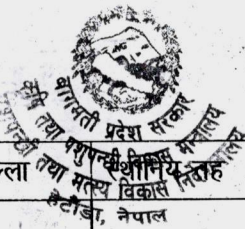 बागमती प्रदेश सरकार
कृषि तथा पशुपन्छी विकास मन्त्रालय
पशुपन्छी तथा मत्स्य विकास निर्देशनालय
ल्ला स्थानिय तह
हेटौंडा, नेपाल